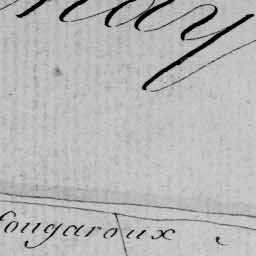 nay
fougaroux